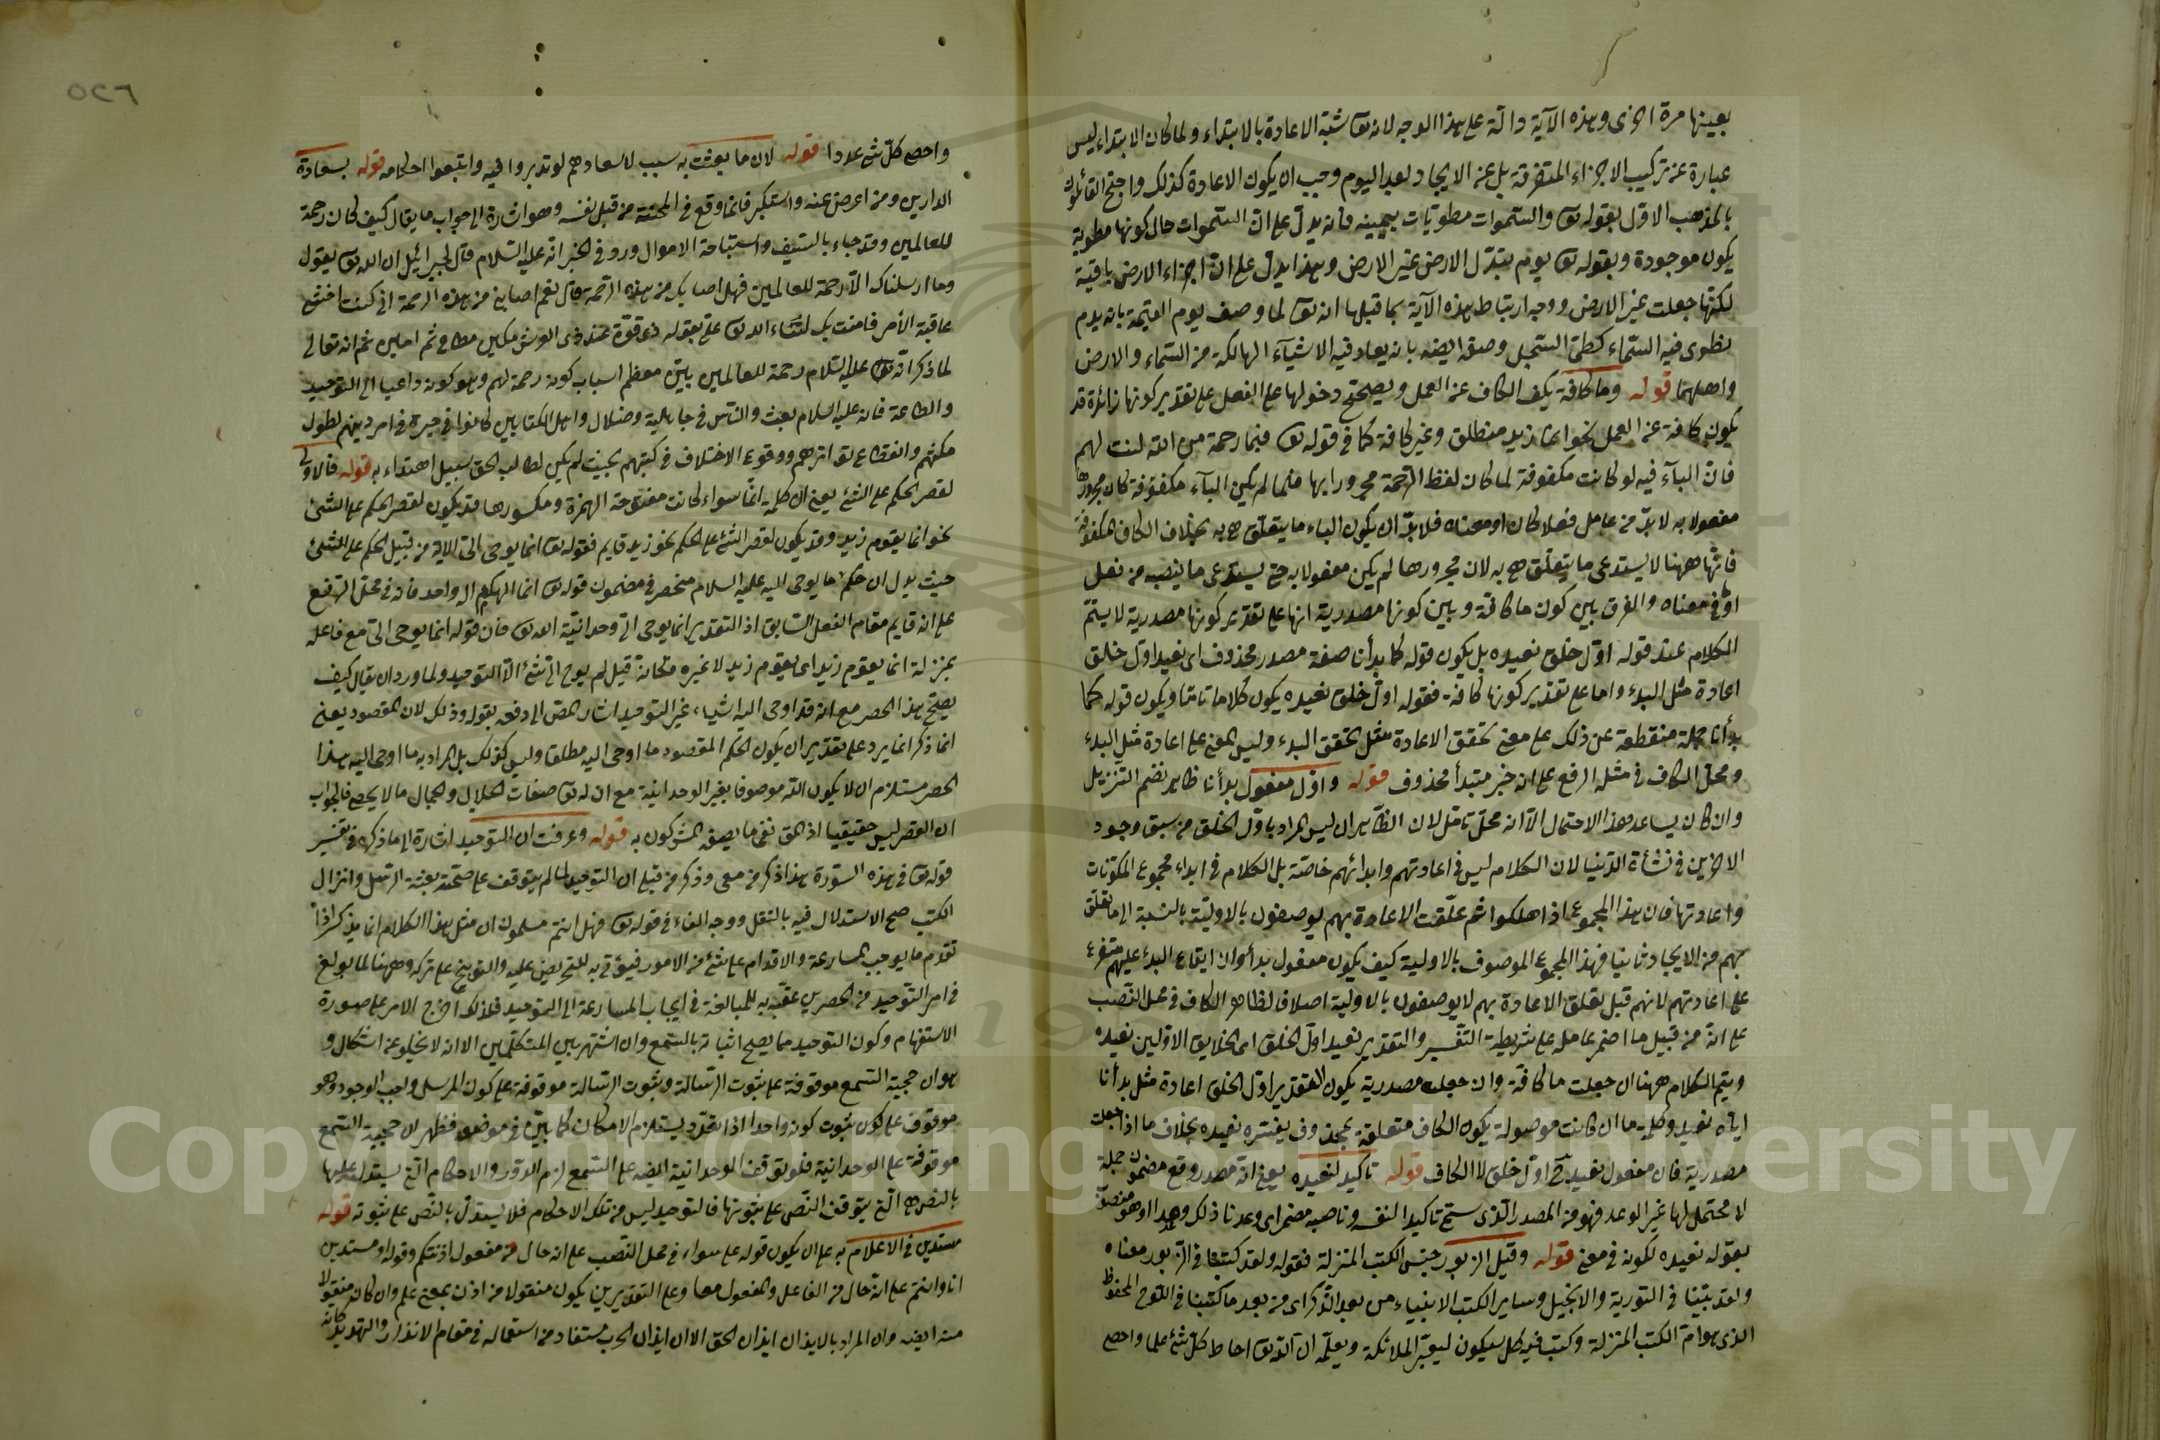 بعينها مرة اخرى وهذه الآية دالة على هذا الوجه لانه تعا شبّه الاعادة بالابتداء ولما كان الابتداء ليس
عبارة عن تركيب الاجزاء المتفرقة بل عن الايجاد بعد العدم وجب ان يكون الاعادة كذلك واحتج القائلون
بالمذهب الاول بقوله تعا والسموات مطويات بيمينه فانه يدل على ان السموات حال كونها مطوية
يكون موجودة وبقوله تعا يوم تبدّل الارض غير الارض وهذا يدل على ان اجزاء الارض باقية
لكنها جعلت غير الارض ووجه ارتباط هذه الآية بما قبلها انه تعا لما وصف يوم القيمة بانه يوم
يطوى فيه السماء كطي السجل وصفه ايضه بانه يعاد فيه الاشياء الهالكة من السماء والارض
واهلهما قوله وما كافة يكف الكاف عن العمل ويصحح دخولها على الفعل على تقدير كونها زائدة قد
يكون كافة عن العمل نحو انما زيد منطلق وغير كافة كما في قوله تعا فبما رحمة من الله لنت لهم
فان الباء فيه لو كانت مكفوفة لما كان لفظ الرحمة مجرورا بها فلما لم يكن الباء مكفوفة كان مجرورها
مفعولا به لا بدّ من عامل فعلا كان او معناه فلا بدّ ان يكون الباء ما يتعلق هي به بخلاف الكاف المكفوفة
فانها ههنا لا يستدعى ما يتعلق هي به لان مجرورها لم يكن مفعولا به حتى يستدعى ما ينصبه من فعل
او في معناه والفرق بين كون ما كافة وبين كونها مصدرية انها على تقدير كونها مصدرية لا يتم
الكلام عند قوله اول خلق نعيده بل يكون قوله كما بدأنا صفة مصدر محذوف اى نعيد اول خلق
اعادة مثل البدء واما على تقدير كونها كافة فقوله اول خلق نعيده يكون كلاما تاما ويكون قوله كما
بدأنا جملة منقطعة عن ذلك على معنى تحقق الاعادة مثل تحقق البدء وليس المعنى على اعادة مثل البدء
ومحل الكاف في مثله الرفع على انه خبر مبتدأ محذوف قوله واول مفعول بدأنا ظاهر نظم التنزيل
وان كان يساعد هذا الاحتمال الا انه محل تامل لان الظاهر ان ليس المراد باول الخلق من سبق وجود
الاخرين في نشأة الدنيا لان الكلام ليس في اعادتهم وابدائهم خاصة بل الكلام في ابداء مجموع المكونات
واعادتها فان هذا المجموع اذا اهلكوا ثم علّقت الاعادة بهم يوصفون بالاولية بالنسبة الى ما تعلق
بهم من الايجاد ثانيا فهذا المجموع الموصوف بالاولية كيف يكون مفعول بدأ وان ايقاع البدء عليهم متفرع
على اعادتهم لانهم قبل تعلق الاعادة بهم لا يوصفون بالاولية اصلا فالظاهر الكاف في محل النصب
على انه من قبيل ما اضمر عامله على شريطة التفسير والتقدير نعيد اول الخلق اى الخلايق الاولين نعيده
ويتم الكلام ههنا ان جعلت ما كافة وان جعلت مصدرية يكون التقدير اول الخلق اعادة مثل بدأنا
اياه نعيد وكلمة ما ان كانت موصولة يكون الكاف متعلقة بمحذوف يفسّره نعيده بخلاف ما اذا جعلت
مصدرية فان مفعول نعيد ح اول خلق لا الكاف قوله تاكيد لنعيده يعنى انه مصدر وقع مضمون جملة
لا محتمل لها غير الوعد فهو من المصدر الذى سمى تاكيد النفسه وناصبه مضمر اى وعدنا ذلك وعدا او هو منصوب
بقوله نعيده لكونه في معنى قوله وقيل الزبور جنس الكتب المنزلة فقوله ولقد كتبنا في الزبور معناه
ولقد بيّنا في التورية والانجيل وساير الكتب الانبياء من بعد الذكر اى من بعد ما كتبنا في اللوح المحفوظ
الذى هو ام الكتب المنزلة وكتب فيه كل سيكون ليعتبر الملائكة ويعلم ان الله تعا احاط كل شئ علما واحصى
٥٢٦
واحصى كل شئ عددا قوله لان ما بعثت به سبب لاسعادهم لو تدبروا فيه واتبعوا احكامه قوله بسعادة
الدارين ومن اعرض عنه واستكبر فانما وقع في المحنة من قبل نفسه وهو اشارة الى جواب ما يقال كيف كان رحمة
للعالمين وقد جاء بالسيف واستباحة الاموال وروى في الخبر انه عليه السلام قال لجبرائيل ان الله تعا يقول
وما ارسلناك الا رحمة للعالمين فهل اصابك من هذه الرحمة قال نعم اصابني من هذه الرحمة اني كنت اخشى
عاقبة الأمر فامنت بك لثناء الله تعا علىّ بقوله ذى قوّة عند ذى العرش مكين مطاع ثم امين ثم انه تعالى
لما ذكر انه عليه السلام رحمة للعالمين بيّن معظم اسباب كونه رحمة لهم وهو كونه داعيا الى التوحيد
والطاعة فانه عليه السلام بعث والناس في جاهلية وضلال واهل الكتابين كانوا في حيرة في امر دينهم لطول
مكثهم وانقطاع تواترهم ووقوع الاختلاف في كتبهم بحيث لم يكن لطالب الحق سبيل اهتداء به قوله فالاولى
لقصر الحكم على الشئ يعنى ان كلمة انما سواء كانت مفتوحة الهمزة ومكسورها قد يكون لقصر الحكم على الشئ
نحو انما يقوم زيد وقد يكون لقصر الشئ على الحكم نحو زيد قايم فقوله تعا انما يوحى الىّ الاية من قبيل الحكم على الشئ
حيث يدل ان حكم ما يوحى اليه عليه السلام منحصر في مضمون قوله تعا انما الهكم اله واحد فانه في محل الرفع
على انه قايم مقام الفعل السابق اذ التقدير انما يوحى الىّ وحدانية الله تعا فان قوله انما يوحى الىّ مع فاعله
بمنزلة انما يقوم زيد اى يقوم زيد لا غيره فكانه قيل لم يوح الىّ شئ الا التوحيد ولما ورد ان يقال كيف
يصح هذا الحصر مع انه قد اوحى اليه اشياء غير التوحيد اشار المص الى دفعه بقوله وذلك لان المقصود يعنى
انما ذكر انما يرد على تقدير ان يكون الحكم المقصود ما اوحى اليه مطلقا وليس كذلك بل المراد به ما اوحى اليه بهذا
الحصر مستلزم ان لا يكون الله موصوفا بغير الوحدانية مع ان له تعا صفات الجلال والجمال ما لا يحصى فالجواب
ان القصر ليس حقيقيا اذ الحق نفى ما يصفه المشركون به قوله وعرفت ان التوحيد اشارة الى ما ذكره في تفسير
قوله تعا في هذه السورة هذا ذكر من معى وذكر من قبلى ان التوحيد لما لم يتوقف على صحته بعثة الرسل وانزال
الكتب صح الاستدلال فيه بالنقل ووجه الفاء في قوله تعا فهل انتم مسلمون ان مثل هذا الكلام انما يذكر اذا
تقدم ما يوجب المسارعة والاقدام على شئ من الامور فيؤتى به للتحريض عليه والتوبيخ على تركه وههنا لما بولغ
في امر التوحيد من الحصرين عقّبه به للمبالغة في ايجاب المسارعة الى التوحيد فلذلك اخرج الامر على صورة
الاستفهام وكون التوحيد مما يصح اثباته بالسمع وان اشتهر بين المتكلمين الا انه لا يخلو عن اشكال و
هو ان حجية السمع موقوفة على ثبوت الرسالة وثبوت الرسالة موقوفة على كون المرسل واجب الوجود وهو
موقوف على كون ثبوت كونه واحدا اذ التعدد يستلزم الامكان كما بيّن في موضعه فظهر ان حجية السمع
موقوفة على الوحدانية فلو توقف الوحدانية ايضه على السمع لزم الدور والاحكام التي يستدل عليها
بالنص هي التي يتوقف النص على ثبوتها فالتوحيد ليس من تلك الاحكام فلا يستدل بالنص على ثبوته قوله
مستوين في الاعلام به على ان يكون قوله على سواء في محل النصب على انه حال من مفعول اذنتكم وقوله او مستوين
انا وانتم على انه حال من الفاعل والمفعول معا وعلى التقديرين يكون منقولا من اذن بمعنى علم وان كان منقولا
منه ايضه وان المراد بالايذان ايذان الحق الا ان ايذان الحرب مستفاد من استعماله في مقام الانذار والتهديد كانه
Copyright © King Saud University